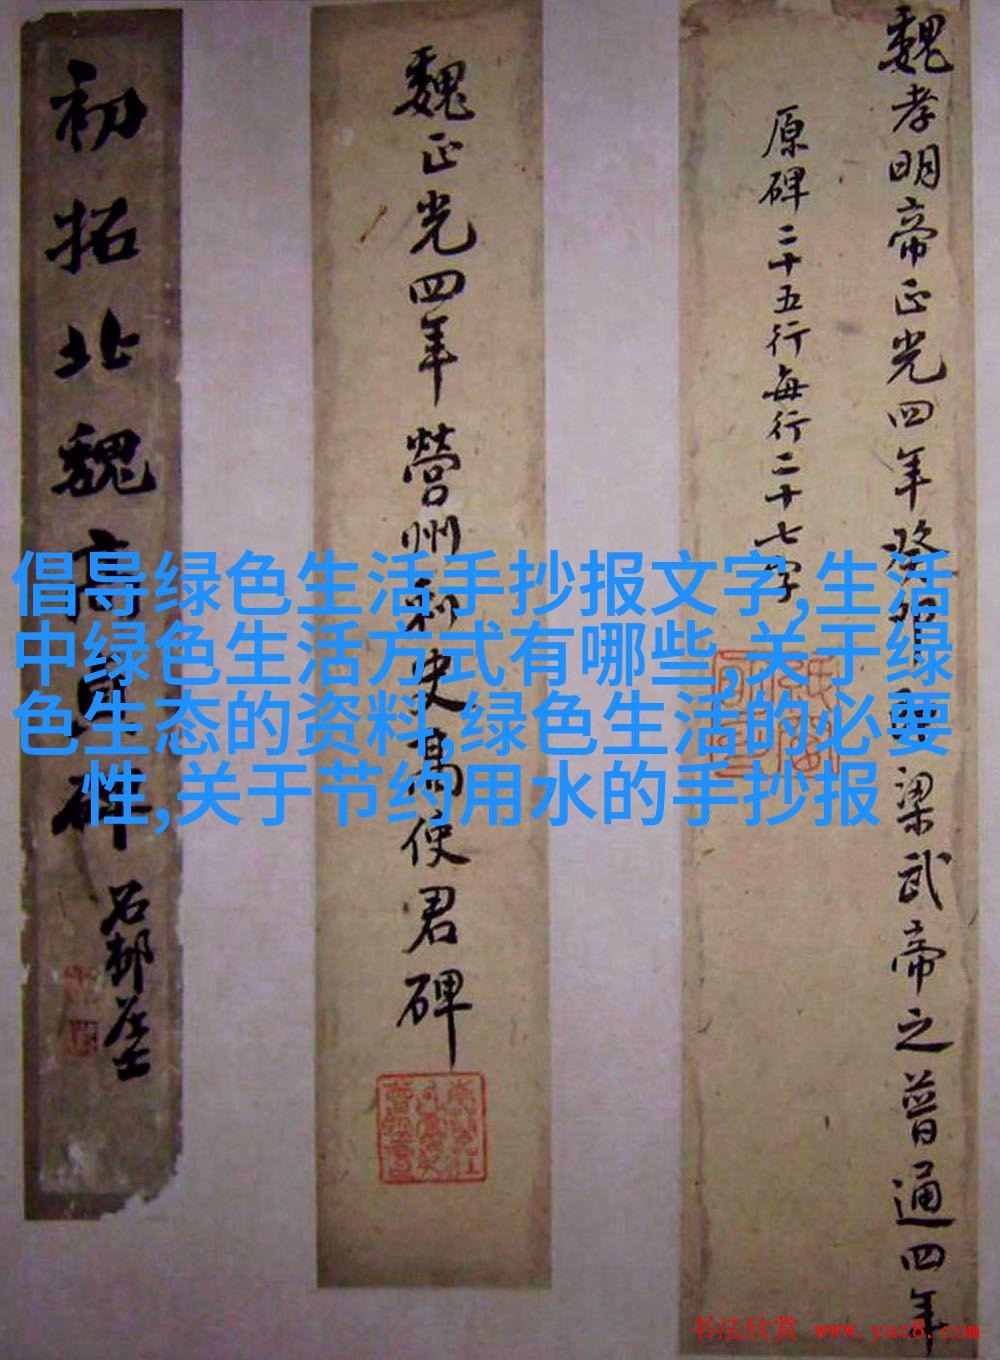 魏孝明帝正光四年
梁武帝之普通四年
原碑二十五行每行二十七字
魏正光四年營州刺史高使君碑
初拓北魏高
碑
石邨居士
倡导绿色生活手抄报文字,生活
中绿色生活方式有哪些,关于绿
色生态的资料,绿色生活的必要
性,关于节约用水的手抄报
书法欣赏 www.yac8.com